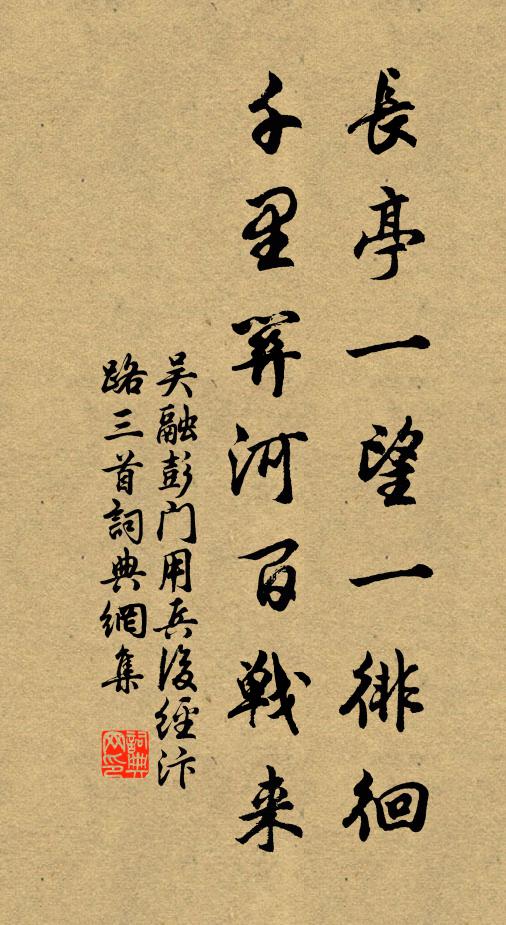 長亭一望一徘徊
千里關河百戰来
吳融彭门用兵後經汴
路三首詞典網集
詞典
网印